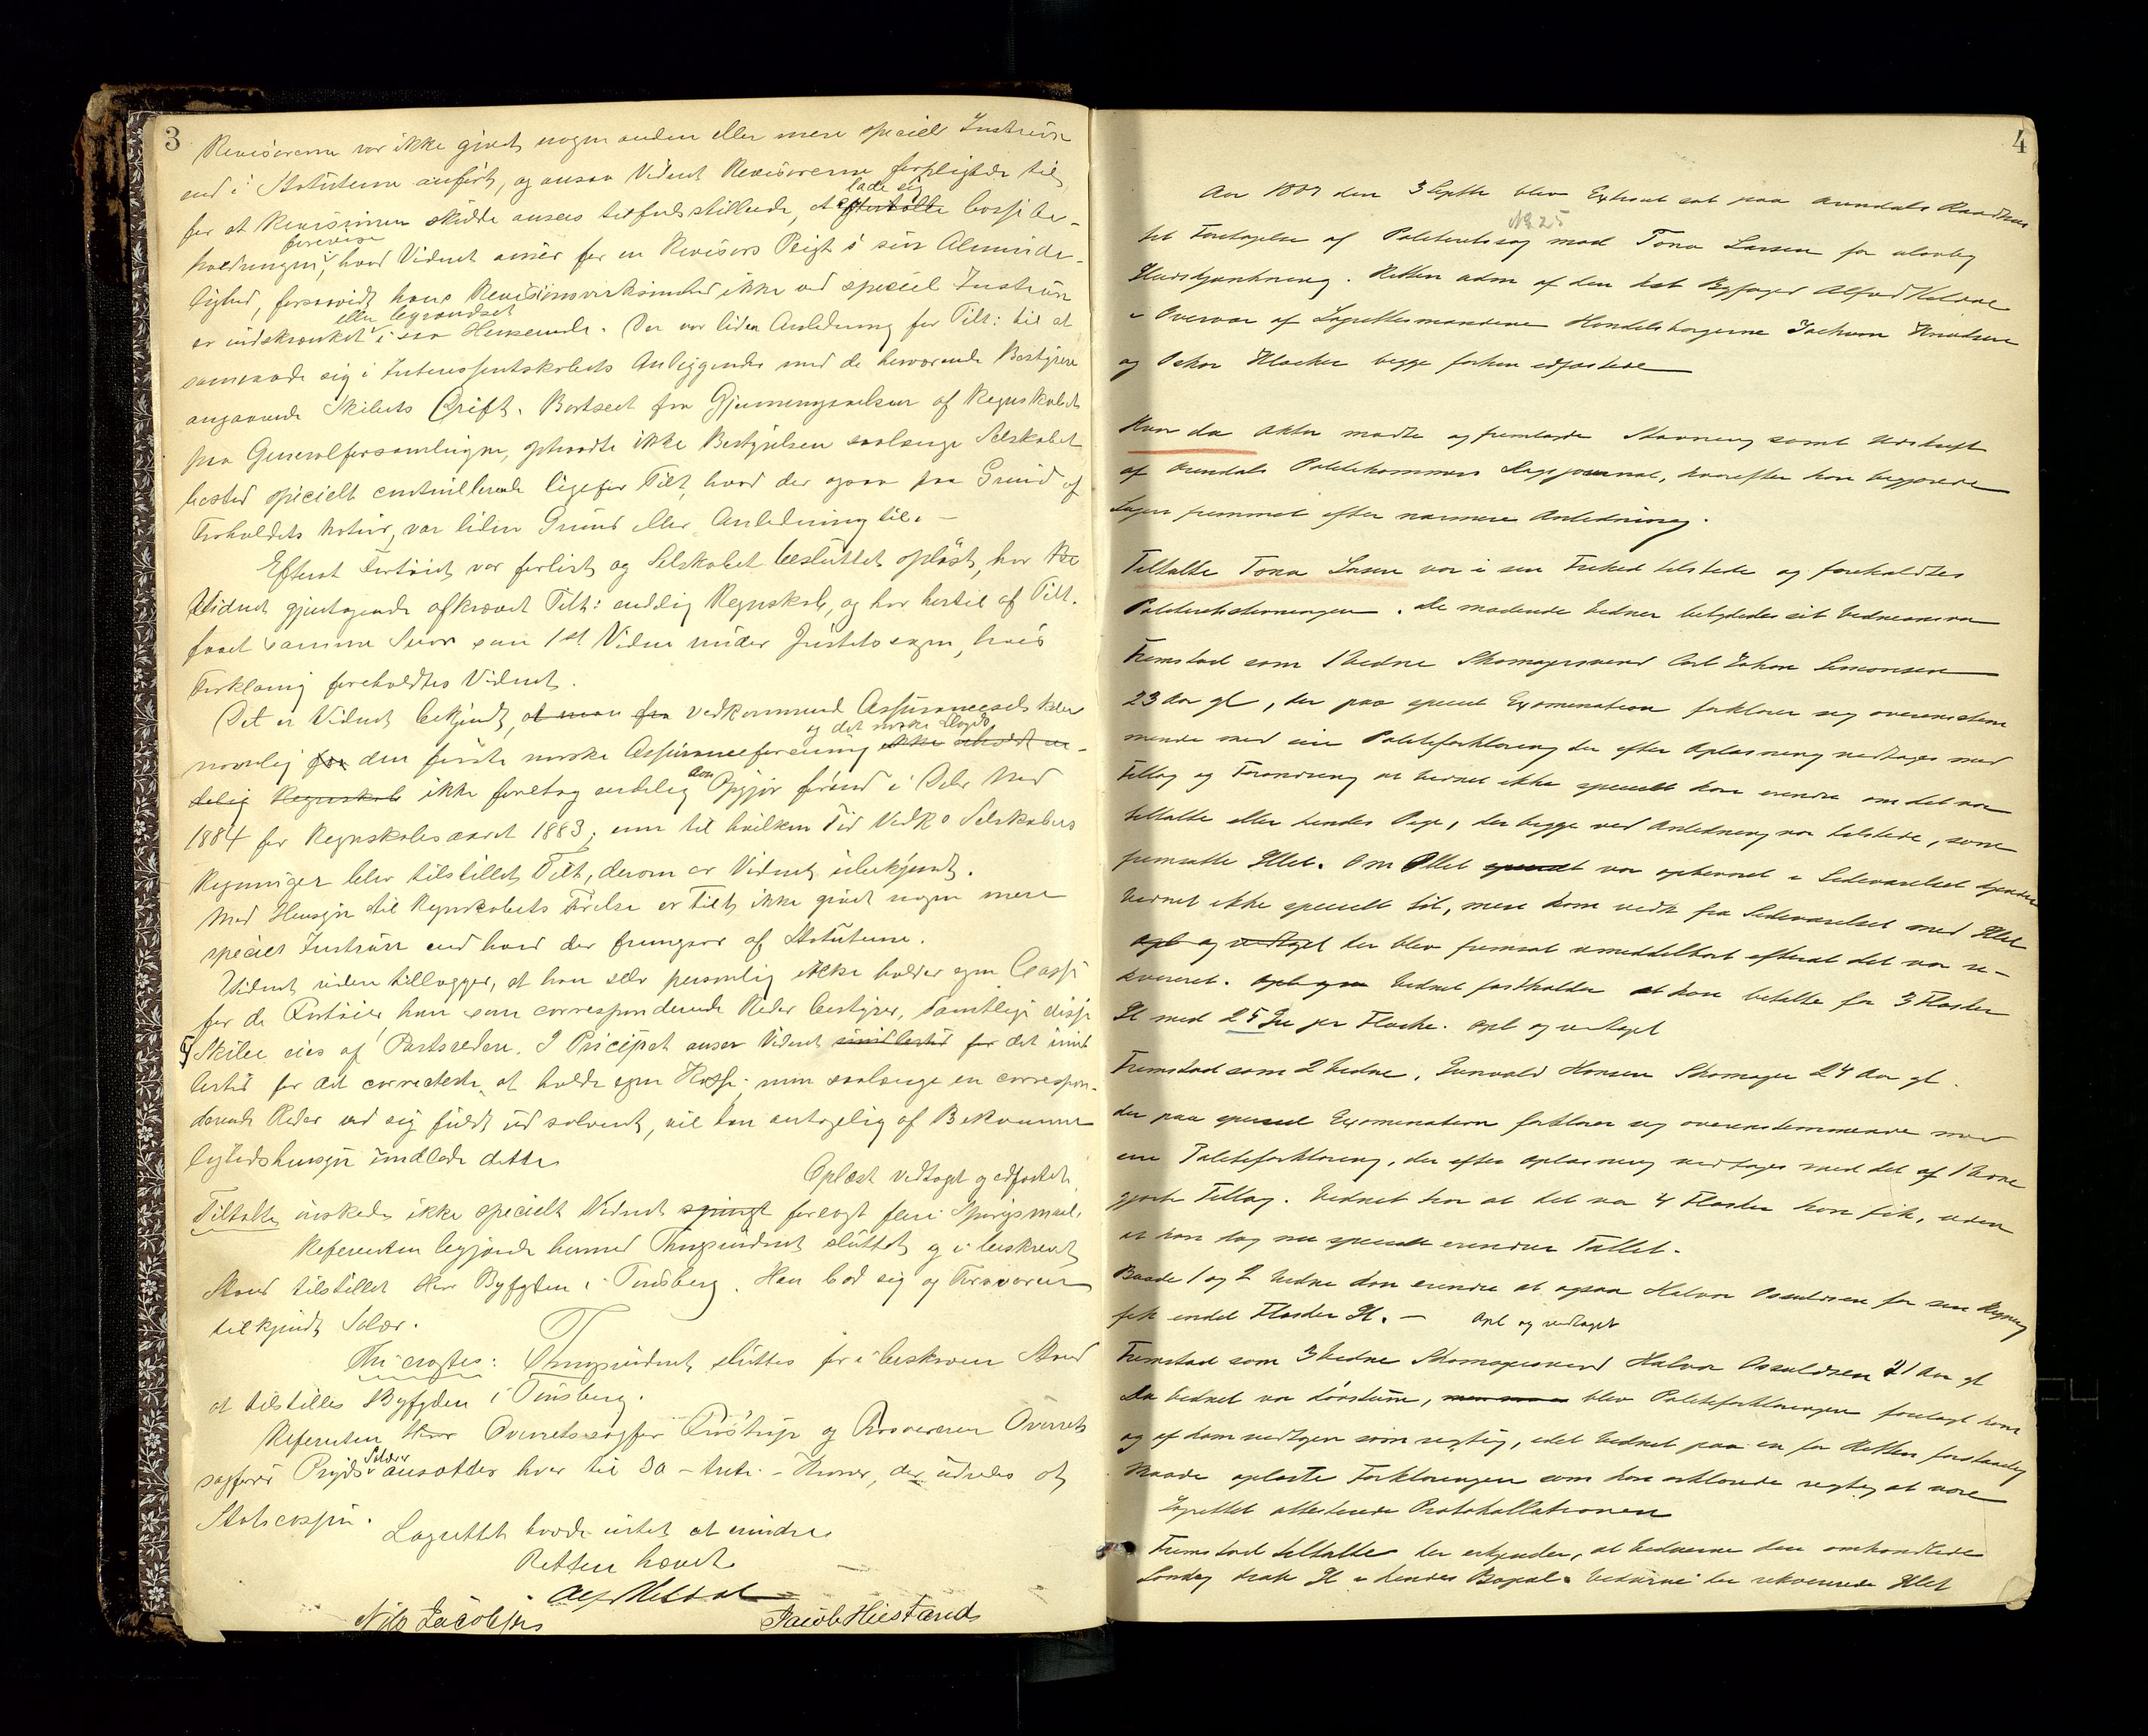 3
Revisorerne var ikke givet nogen anden eller mere speciel Instrux
end i Statuterne anført, og ansaa Vidnet Revisorerne forpligtede til,
lade sig
for at Revisionen skulde ansees tilfredsstillende, at efterholde Cassabe-
forevise
holdningen, hvad Vidnet anser for en Revisors Pligt i sin Alminde-
lighed, forsaavidt hans Revisionsvirksomhed ikke ved speciel Instrux
eller begrændset
er indskrænket i saa Henseende. Der var liden Anledning for Tilt: til at
samraade sig i Interessentskabets Anliggender med de herværende Bestyrere
angaaende Skibets Drift. Bortseet fra Gjennemgaaelsen af Regnskabet
paa Generalforsamlingen, optraadte ikke Bestyrelsen saalænge Selskabet
bestod specielt controllerende ligefor Tilt, hvad der ogsaa paa Grund af
Forholdets Natur, var liden Grund eller Anledning til. –
Efterat Fartøiet var forlist og Selskabet besluttet opløst, har
Vidnet gjentagende afkrævet Tilt: endelig Regnskab, og har hertil af Tilt.
faaet samme Svar som 1st Vidne under Justitssagen, hvis
Forklaring foreholdtes Vidnet.
Det er Vidnet bekjendt, at man fra vedkommende Assuranceselskaber
og det norske Lloyds
navnlig fra den første norske Assuranceforening ikke erholdt en-
delig Regnskab ikke foretog endelig Opgjør førend i Dele Med
1884 for Regnskabsaaret 1883; men til hvilken Tid Vedk Selskabers
Regninger blev tilstillet Tilt, derom er Vidnet ubekjendt.
Med Hensyn til Regnskabets Førelse er Tilt ikke givet nogen mere
speciel Instrux end hvad der fremgaar af Statuterne.
Vidnet videre tillægger, at han selv personlig ikke holder egen Cassa
for de Fartøier han som correspondende Reder bestyrer, samtlige disse
Skibe eies af Partsredere. I Principet anser Vidnet imidlertid for det imid
lertid for det correcteste, at holde egen Kasse; men saalænge en correspon-
derende Reder ved sig fuldt ud solvent, vil han antagelig af Bekvemme
lighedshensyn undlade dette.
Oplæst vedtaget og edfæstet.
Tiltalte ønskede ikke specielt Vidnet spurgt forelagt flere Spørgsmaal.
Referenten begjærede hermed Thingsvidnet sluttet og i beskrevet
Stand tilstillet Herr Byfogden i Tønsberg. Han bad sig og Forsvareren
tilkjendt Salær.
Thi eragtes: Thingsvidnet sluttes for i beskreven Stand
at tilstilles Byfogden i Tønsberg.
Referenten Herr Overretssagfør og Forsvareren Overrets
Salærer
sagfører ansættes hver til 30 – treti – Kroner, der udredes af
Statscassen.
Lagrettet havde intet at erindre.
Retten hævet.
Nils Jacobsen
4
Aar 1887 den 3 Septbr blev Extraret sat paa Arendals Raadhus
No 25
til Foretagelse af Politiretssag mod Tona Larsen for ulovlig
Øludskjænkning. Retten adm af den kst Byfoged Alfred
i Overvær af Lagrettesmændene Handelsborgerne Jochum Knudsen
og Oskar begge forhen edfæstede
Hvor da Aktor mødte og fremlagde Stævning samt Udskrift
af Arendals Politikammers Dagsjournal, hvorefter han begjærede
Sagen fremmet efter nærmere Anledning.
Tiltalte Tona Larsen var i sin Frihed tilstede og foreholdtes
Politiretsstævningen. De mødende Vidner betydedes sit Vidneansvar
Fremstod som 1 Vidne Skomagersvend Carl Johan Simonsen
23 Aar gl, der paa speciel Examination forklarer sig overensstem
mende med sin Politiforklaring der efter Oplæsning vedtages med
Tillæg og Forandring at Vidnet ikke specielt kan erindre om det var
tiltalte eller hendes Pige, der begge ved Anledning var tilstede, som
fremsatte Øllet. Om Øllet specielt var opbevaret i Sideværelset kjender
Vidnet ikke specielt til, men kom vedk fra Sideværelset med Øllet
Opl og vedtaget der blev fremsat umiddelbart efterat det var re-
kvireret. Vidnet fastholder at han betalte for 3 Flasker
Øl med 25 Øre pr Flaske. Opl og vedtaget
Fremstod som 2 Vidne, Gunvald Hansen Skomager 24 Aar gl.
der paa speciel Examination forklarer sig overensstemmende med
sin Politiforklaring, der efter Oplæsning vedtages med det af 1 Vidne
gjorte Tillæg. Vidnet tror at det var 4 Flasker han fik, uden
at han dog nu specielt erindrer Tallet.
Baade 1 og 2 Vidne kan erindre at ogsaa Halvor Osuldsen for sin Regning
fik endel Flasker Øl. – Opl og vedtaget
Fremstod som 3 Vidne Skomagersvend Halvor Osuldsen 21 Aar gl
Da Vidnet var døvstum, blev Politiforklaringen forelagt ham
og af ham vedtagen som rigtig, idet Vidnet paa en for Retten forstaaelig
Maade oplæste Forklaringen som han erklærede rigtig at være
Lagrettet attesterede Protokollationen
Fremstod tiltalte der erkjender, at Vidnerne den omhandlede
Søndag drak Øl i hendes Bopæl. Vidnerne der rekvirerede Øllet